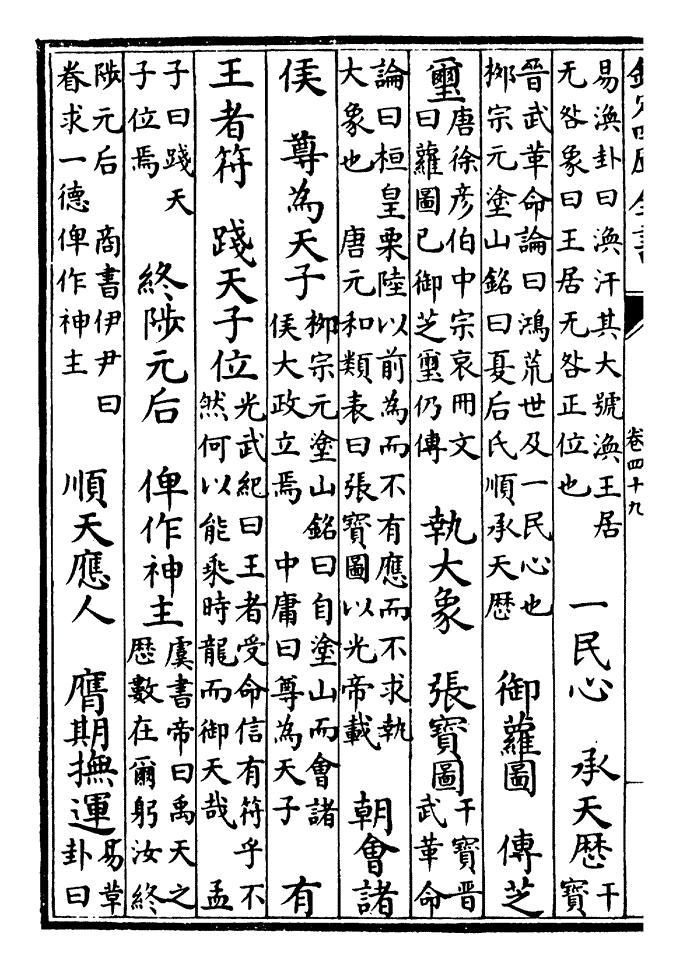 欽定四庫全書
卷四十九
易渙卦曰渙汗其大號渙王居
无咎象曰王居无咎正位也
一民心　承天歴
干
寶
晉武革命論曰鴻荒世及一民心也
栁宗元塗山銘曰夏后氏順承天歴
御蘿圖　傳芝
璽
唐徐彦伯中宗哀冊文
曰蘿圖已御芝璽仍傳
執大象　張寶圖
干寶晉
武革命
論曰桓皇栗陸以前為而不有應而不求執
大象也　唐元和類表曰張寶圖以光帝載
朝會諸
侯　尊為天子
栁宗元塗山銘曰自塗山而會諸
侯大政立焉　中庸曰尊為天子
有
王者符　踐天子位
光武紀曰王者受命信有符乎不
然何以能乗時龍而御天哉　孟
子曰踐天
子位焉
終陟元后　俾作神主
虞書帝曰禹天之
歴數在爾躬汝終
陟元后　商書伊尹曰
眷求一德俾作神主
順天應人　膺期撫運
易革
卦曰